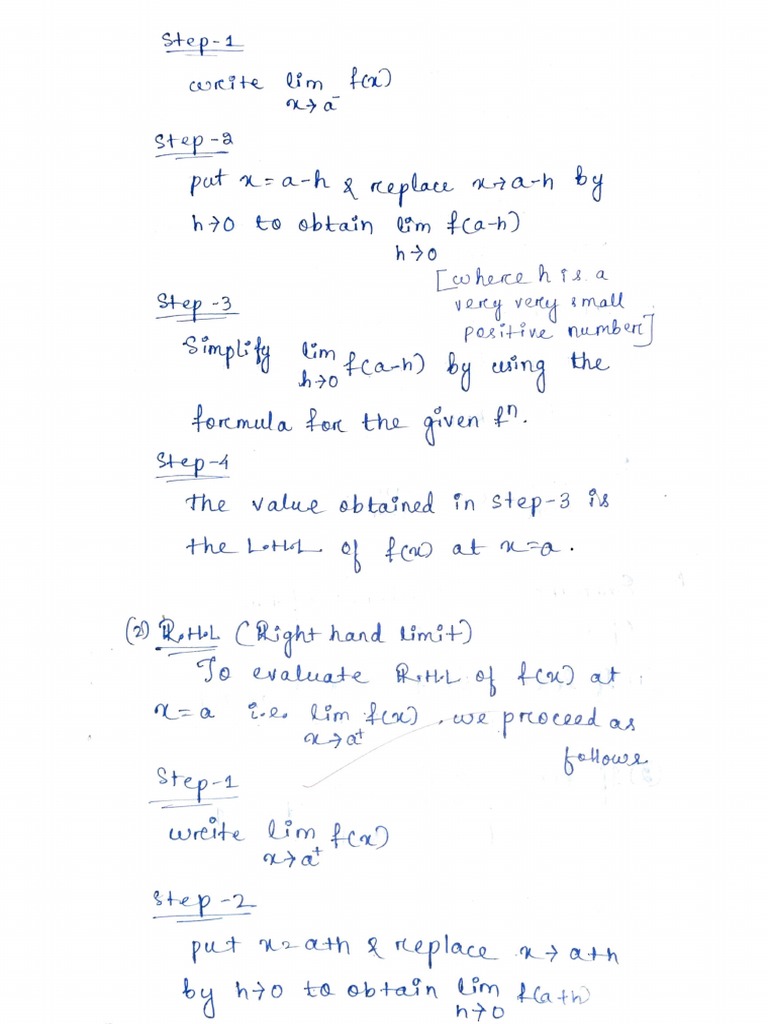 Step-1
write lim f(x)
x→a⁻
Step-2
put x = a-h & replace x→a-h by
h→0 to obtain lim f(a-h)
h→0
[where h is a
very very small
positive number]
Step-3
Simplify lim f(a-h) by using the
h→0
formula for the given fⁿ.
Step-4
The value obtained in step-3 is
the L.H.L of f(x) at x=a.
(2) R.H.L (Right hand limit)
To evaluate R.H.L of f(x) at
x=a i.e. lim f(x), we proceed as
x→a⁺
follows
Step-1
write lim f(x)
x→a⁺
Step-2
put x = a+h & replace x→a+h
by h→0 to obtain lim f(a+h)
h→0